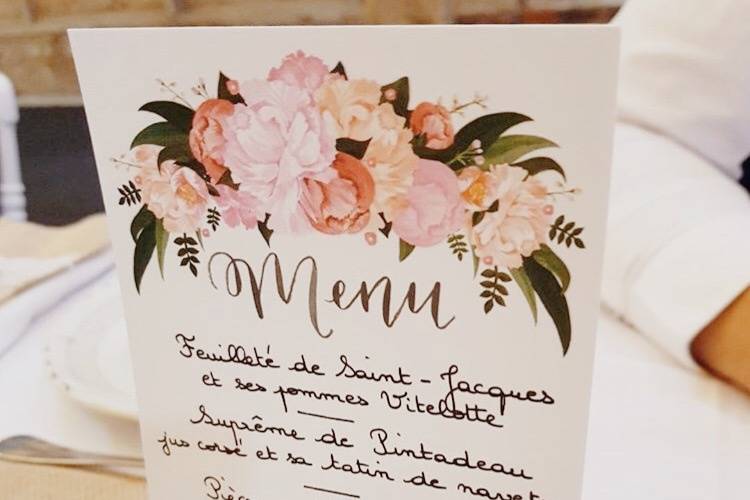 Menu
Feuilleté de Saint-Jacques
et ses pommes Vitelotte
Suprême de Pintadeau
jus corsé et sa tatin de navet
Pièc